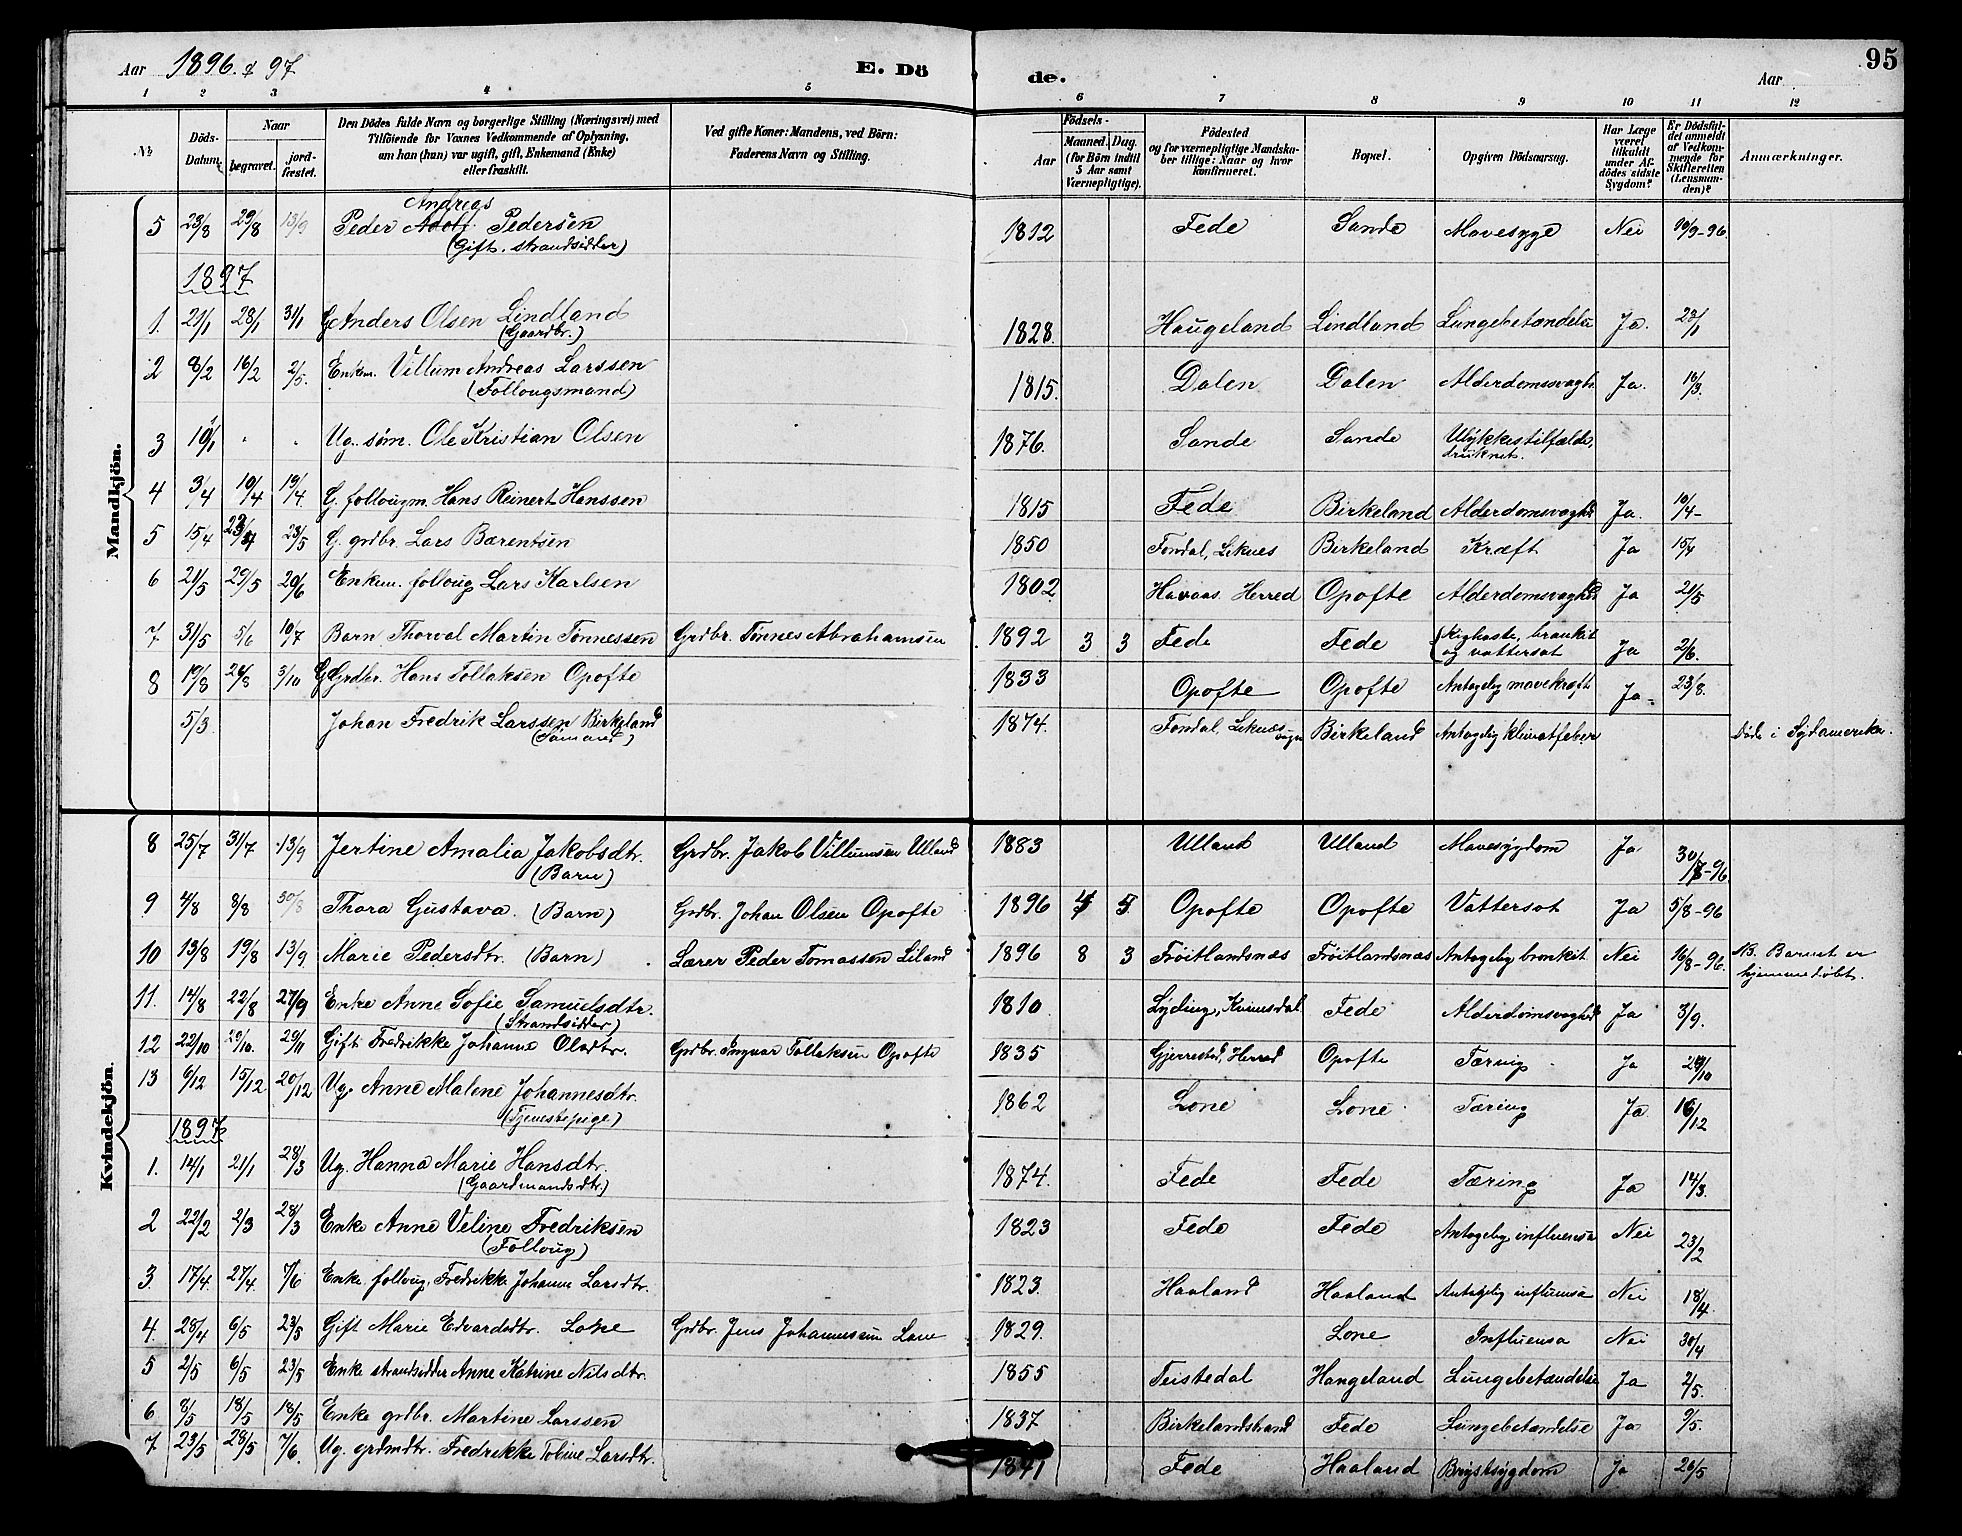 Aar 1896 & 97 E. Dö de. Aar 95
1 2 3 4 5 6 7 8 9 10 11 12
№
Döds-Datum.
Naar
begravet.
jordfæstet.
Den Dödes fulde Navn og borgerlige Stilling (Næringsvei) med
Tilföiende for Voxnes Vedkommende af Oplysning,
om han (hun) var ugift, gift, Enkemand (Enke)
eller fraskilt.
Ved gifte Koner: Mandens, ved Börn:
Faderens Navn og Stilling.
Födsels-
Aar
Maaned. Dag.
(for Börn indtil
5 Aar samt
Værnepligtige).
Födested
og for værnepligtige Mandska-
ber tillige: Naar og hvor
konfirmeret.
Bopæl.
Opgiven Dödsaarsag.
Har Læge
været
tilkaldt
under Af-
dödes sidste
Sygdom?
Er Dödsfal-
det anmeldt
af Vedkom-
mende for
Skifteretten
(Lensman-
den)?
Anmærkninger.
Mandkjön.
Andreas
5 23/8 29/8 13/9 Peder Adolf Pedersen 1812 Fede Sande Mavesyge Nei 10/9-96.
(Gift. strandsidder)
1897
1. 21/1 28/1 31/1 G Anders Olsen Lindland 1828. Haugeland Lindland Lungebetændelse Ja. 28/1
(Gaardbr.)
2 8/2 16/2 2/5. Enkem. Villum Andreas Larssen 1815. Dalen Dalen Alderdomssvagh. Ja. 16/3.
(Follougsmand)
3 10/1 " " Ug. søm. Ole Kristian Olsen 1876. Sande Sande Ulykkestilfælde,
druknet.
4 3/4 10/4 19/4 G. follougm. Hans Reinert Hanssen 1815 Fede Birkeland Alderdomsvaghed Ja. 10/4-
5 15/4 23/5 G. grdbr. Lars Bærentsen 1850 Fondal, Liknes Birkeland Kræft Ja 15/4
6 21/5 29/5 20/6 Enkem. folloug Lars Karlsen 1802. Havaas. Herred Opofte Alderdomsvaghed Ja 21/5
7 31/5 5/6 10/7 Barn Thorval Martin Tønnessen Grdbr. Tønnes Abrahamsen 1892 3 3 Fede Fede (Kighoste, bronkit
og vattersot Ja 2/6.
8 19/8 24/8 3/10 G Grdbr. Hans Tollaksen Opofte 1833 Opofte Opofte Antagelig mavekræft Ja. 23/8.
5/3. Johan Fredrik Larssen Birkeland 1874. Fondal, Liknes sogn Birkeland Antagelig klimatfeber Døde i Sydamerika.
(Sømand)
Kvindekjön.
8 25/7 31/7 13/9 Jertine Amalia Jakobsdtr. Grdbr. Jakob Villumsen Ulland 1883 Ulland Ulland Mavesygdom Ja 30/7-96.
(Barn)
9 4/8 8/8 30/8 Thora Gustava. (Barn) Grdbr. Johan Olsen Opofte 1896 4 5. Opofte Opofte Vattersot Ja 5/8-96
10 13/8 19/8 13/9. Marie Pedersdtr. (Barn) Lærer Peder Tomassen Liland 1896 8 3 Frøitlandsnæs Frøitlandsnæs Antagelig bronkit Nei 16/8-96. NB. Barnet er
hjemmedøbt.
11. 14/8 22/8 27/9 Enke Anne Sofie Samuelsdtr. 1810 Lyding, Kvinesdal Fede Alderdomsvaghed Ja 3/9.
(Strandsidder)
12 22/10 29/10. 29/11 Gift Fredrikke Johanne Olsdtr. Grdbr. Ingvar Tollaksen Opofte 1835 Gjerrestad, Herred Opofte Tæring Ja 24/10
13 6/12 15/12 20/12 Ug. Anne Malene Johannesdtr. 1862 Lone Lone Tæring Ja. 16/12
(Tjenestepige)
1897
1. 14/1 21/1 28/3 Ug. Hanna Marie Hansdtr. 1874. Fede Fede Tæring Ja 14/3.
(Gaardmandsdtr.)
2 22/2 2/3 28/3 Enke Anne Veline Fredriksen 1823 Fede Fede Antagelig influensa Nei 23/2
(Folloug)
3. 17/4. 27/4. 7/6 Enke folloug. Fredrikke Johanne Larsdtr. 1823. Haaland Haaland Antagelig influensa Nei 18/4.
4. 28/4 6/5 23/5 Gift Marie Edvardsdtr. Lone Grdbr. Jens Johannessen Lone 1829. Lone Influensa Nei 30/4
5 2/5 6/5 23/5 Enke strandsidder Anne Katrine Nilsdtr. 1855 Teistedal Haugeland Lungebetændelse Ja 2/5.
6 8/5 18/5 18/5 Enke grdbr. Martine Larssen 1837 Birkelandstrand Fede Lungebetændelse Ja 9/5.
7 23/5 28/5 7/6. Ug. grdmdtr. Fredrikke Tobine Larsdtr. 1841 Fede Haaland Brystsygdom Ja 26/5